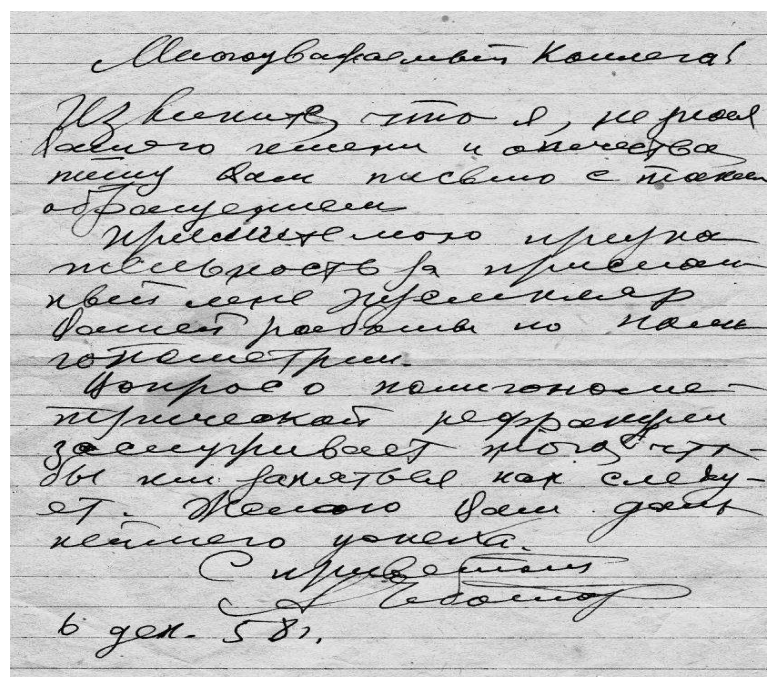 Многоуважаемый Коллега!
Извините, что я, не зная
Вашего имени и отчества,
пишу Вам письмо с таким
обращением
Примите мою призна-
тельность за прислан-
ный мне экземпляр
Вашей работы по поли-
гонометрии.
Вопрос о полигономе-
трической рефракции
заслуживает того, что-
бы им заняться как следу-
ет. Желаю Вам даль-
нейшего успеха.
С приветом
6 дек. 58 г.